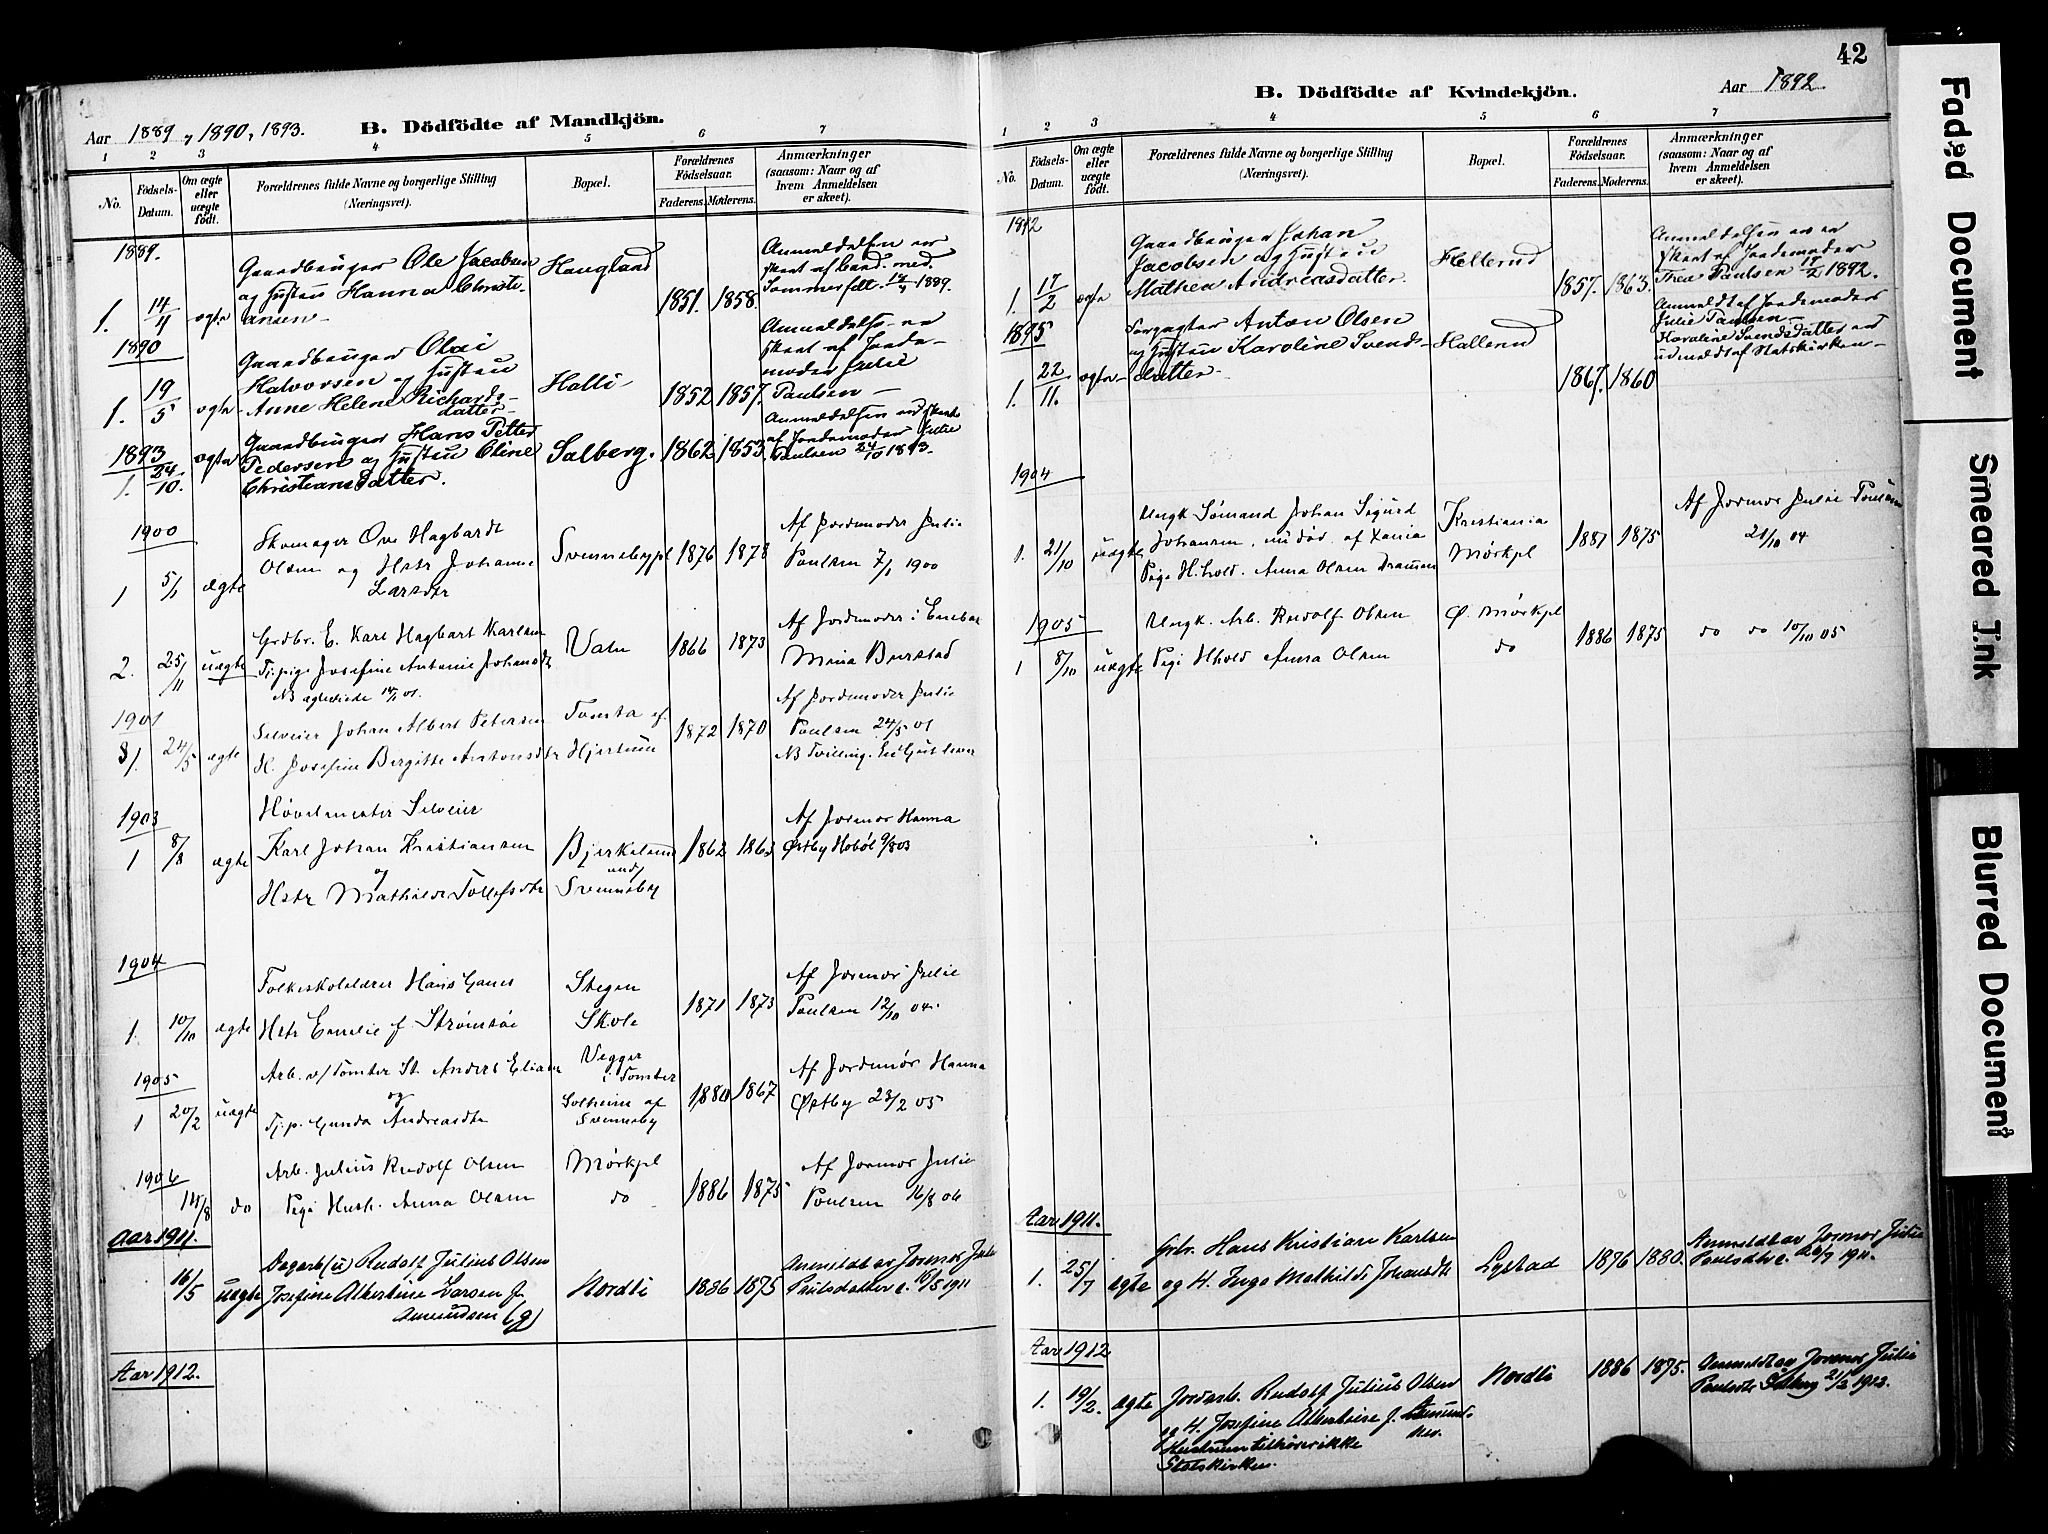 Aar 1889, 1890, 1893.
B. Dödfödte af Mandkjön.
1 2 3 4 5 6 7
No.
Födsels-
Datum.
Om ægte
eller
uægte
födt.
Forældrenes fulde Navne og borgerlige Stilling
(Næringsvei).
Bopæl.
Forældrenes
Födselsaar.
Faderens. Moderens.
Anmærkninger
(saasom: Naar og af
hvem Anmeldelsen
er skeet).
1889.
1. 14/4 ægte
Gaardbruger Ole Jacobsen
og Hustru Hanna Christi-
ansen
Haugland
1851. 1858.
Anmeldelsen er
skeet af Gaard. med.
Sommerfelt. 17/4 1889.
1890
1. 19/5 ægte
Gaardbruger Olai
Halvorsen og Hustru
Anne Helene Richards-
datter
Halli
1852 1857.
Anmeldelse er
skeet af Jorde-
moder Julie
Paulsen
1893
1. 24/10. ægte
Gaardbruger Hans Petter
Pedersen og Hustru Oline
Christiansdatter.
Salberg.
1862 1853.
Anmeldelsen er skeet
af Jordemoder Julie
Paulsen 24/10 1893.
1900
1 5/1 ægte
Skomager Ove Hagbardt
Olsen og Hstr Johanne
Larsdtr
Svennebypl
1876 1878
Af Jordemoder Julie
Poulsen 7/1 1900
2. 25/11 uægte
Grdbr. E. Karl Hagbart Karlsen
Tj.pige Josefine Antonie Johansdtr
NB ægteviede 14/1 01.
Vatn
1866 1873
Af Jordemoder i Enebak
Mina Burstad
1901
3/. 24/5 ægte
Selveier Johan Albert Petersen
H. Josefine Birgitte Antonsdtr
Tomta ef.
Hjertum
1872 1870
Af Jordemoder Julie
Poulsen 24/5 01
NB Tvilling. En Gut lever
1903
1 8/8 ægte
Høvelmester Selveier
Karl Johan Kristiansen
og
Hstr Mathilde Tollefsdtr
Bjerkelund
und
Svenneby
1862 1863
Af Jormor Hanna
Østby Hobøl 9/8 03
1904
1. 10/10 ægte
Folkeskolelærer Hans Gaues
Hstr Emelie f. Strømsøe
Stegen
Skole
1871 1873
Af Jormor Julie
Poulsen 12/10 04.
1905
1 20/2 uægte
Arb. v/Tomter St. Anders Eliasen
og
Tj.p. Gunda Andreasdtr
Vegger
i Tomter
Solheim af
Svenneby
1880 1867
Af Jordemor Hanna
Østby 23/2 05
1906
14/8 do
Arb. Julius Rudolf Olsen
Pige Hush. Anna Olsen
Mørkpl
do
1886 1875
Af Jormor Julie
Poulsen 16/8 06
Aar 1911.
16/5 uægte
Dagarb (u) Rudolf Julius Olsen
Josefine Albertine Larsen f.
Amundsen (g)
Nordli
1886 1875
Anmeldt av Jormor Julie
Paulsdatter e. 16/5 1911
Aar 1912.
42
B. Dödfödte af Kvindekjön.
Aar 1892.
1 2 3 4 5 6 7
No.
Födsels-
Datum.
Om ægte
eller
uægte
födt.
Forældrenes fulde Navne og borgerlige Stilling
(Næringsvei).
Bopæl.
Forældrenes
Födselsaar.
Faderens. Moderens.
Anmærkninger
(saasom: Naar og af
hvem Anmeldelsen
er skeet).
1892
1. 17/2 ægte
Gaardbruger Johan
Jacobsen og Hustru
Mathea Andreasdatter.
Hellerud
1857. 1863.
Anmeldelsen er
skeet af Jordemoder
Thea Paulsen 17/2 1892.
1895
1. 22/11. ægte
Forpagter Anton Olsen
og Hustru Karoline Svends-
datter
Hallerud
1867. 1860
Anmeldt af Jordemoder
Julie Paulsen
Karoline Svendsdatter er
udmeldt af Statskirken
1904
1. 21/10 uægte
Ungk Sømand Johan Sigurd
Johansen, nu død, af Xania
Pige H.hold. Anna Olsen Drammen
Kristiania
Mørkpl
1881 1875
Af Jormor Julie Poulsen
21/10 04
1905
1 8/10 uægte
Ungk. Arb. Rudolf Olsen
Pige Hhold Anna Olsen
Ø. Mørkpl
do
1886 1875
do do 10/10 05
Aar 1911.
1. 25/7 ægte
Grbr. Hans Kristian Karlsen
og H. Inga Mathilde Johansdtr
Lystad
1876 1880.
Anmeldt av Jormor Julie
Paulsdtr e. 26/7 1911.
Aar 1912
1. 19/2. ægte
Jordarb. Rudolf Julius Olsen
og H. Josefine Albertine f. Amund-
sen.
Hustrun tilhører ikke
Statskirken.
Nordli
1886 1875.
Anmeldt av Jormor Julie
Paulsdtr Solberg 21/2 1912.
Faded Document
Smeared Ink
Blurred Document